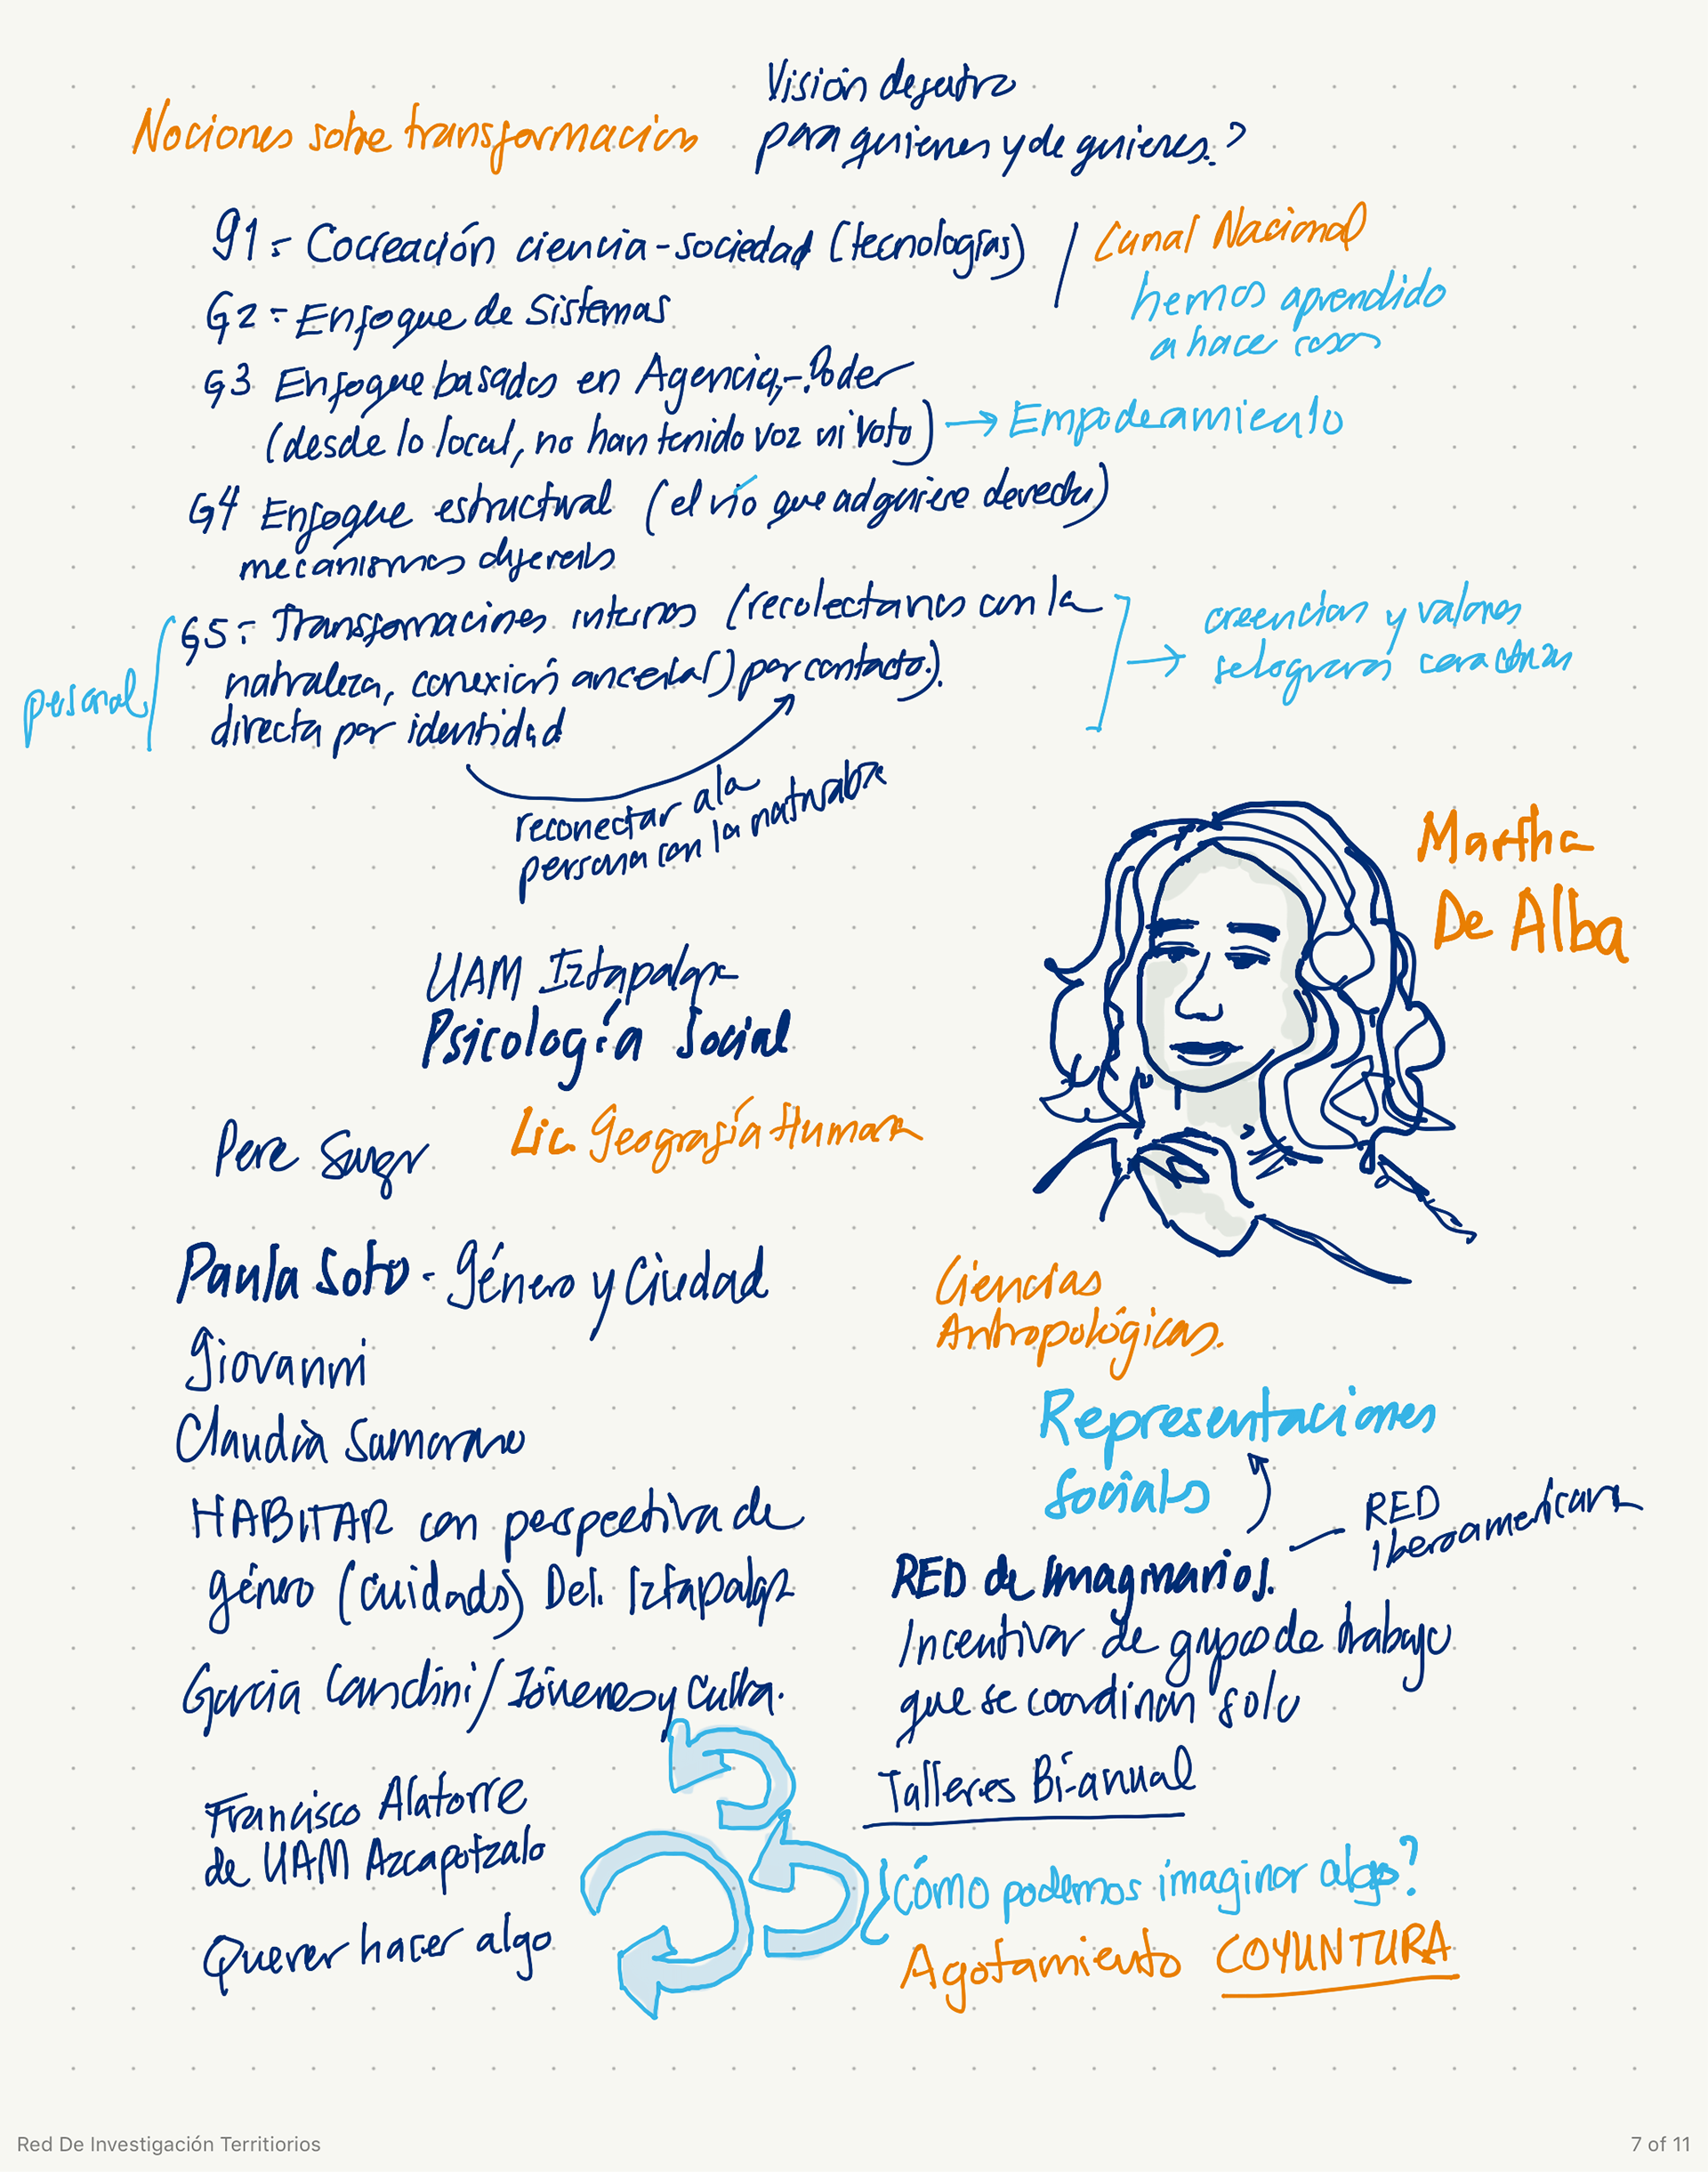 Visión de futuro
Nociones sobre transformación
para quienes y de quienes?
G1 = Cocreación ciencia-sociedad (tecnologías)
Canal Nacional
hemos aprendido
a hace cosas
G2 = Enfoque de Sistemas
G3 Enfoque basados en Agencia, - Poder
(desde lo local, no han tenido voz ni voto) → Empoderamiento
G4 Enfoque estructural (el río que adquiere derecho)
mecanismos
personal
G5 = Transformaciones internas con la
naturaleza, conexión ancestral) por contacto.)
directa por identidad
creencias y valores
reconectar a la
persona con la naturaleza
Martha
De Alba
UAM Iztapalapa
Psicología Social
Lic. Geografía Humana
Pere
Paula Soto - Género y Ciudad
Giovanni
Claudia
HABITAR con perspectiva de
género (cuidados) Del. Iztapalapa
García Canclini / Jóvenes y Cultura.
Francisco Alatorre
de UAM Azcapotzalo
Querer hacer algo
Ciencias
Antropológicas.
Representaciones
Sociales
RED
iberoamericana
RED de Imaginarios.
Incentivar de grupo de trabajo
que se coordinan solo
Talleres Bi-anual
¿Cómo podemos imaginar algo?
Agotamiento COYUNTURA
Red De Investigación Territiorios
7 of 11